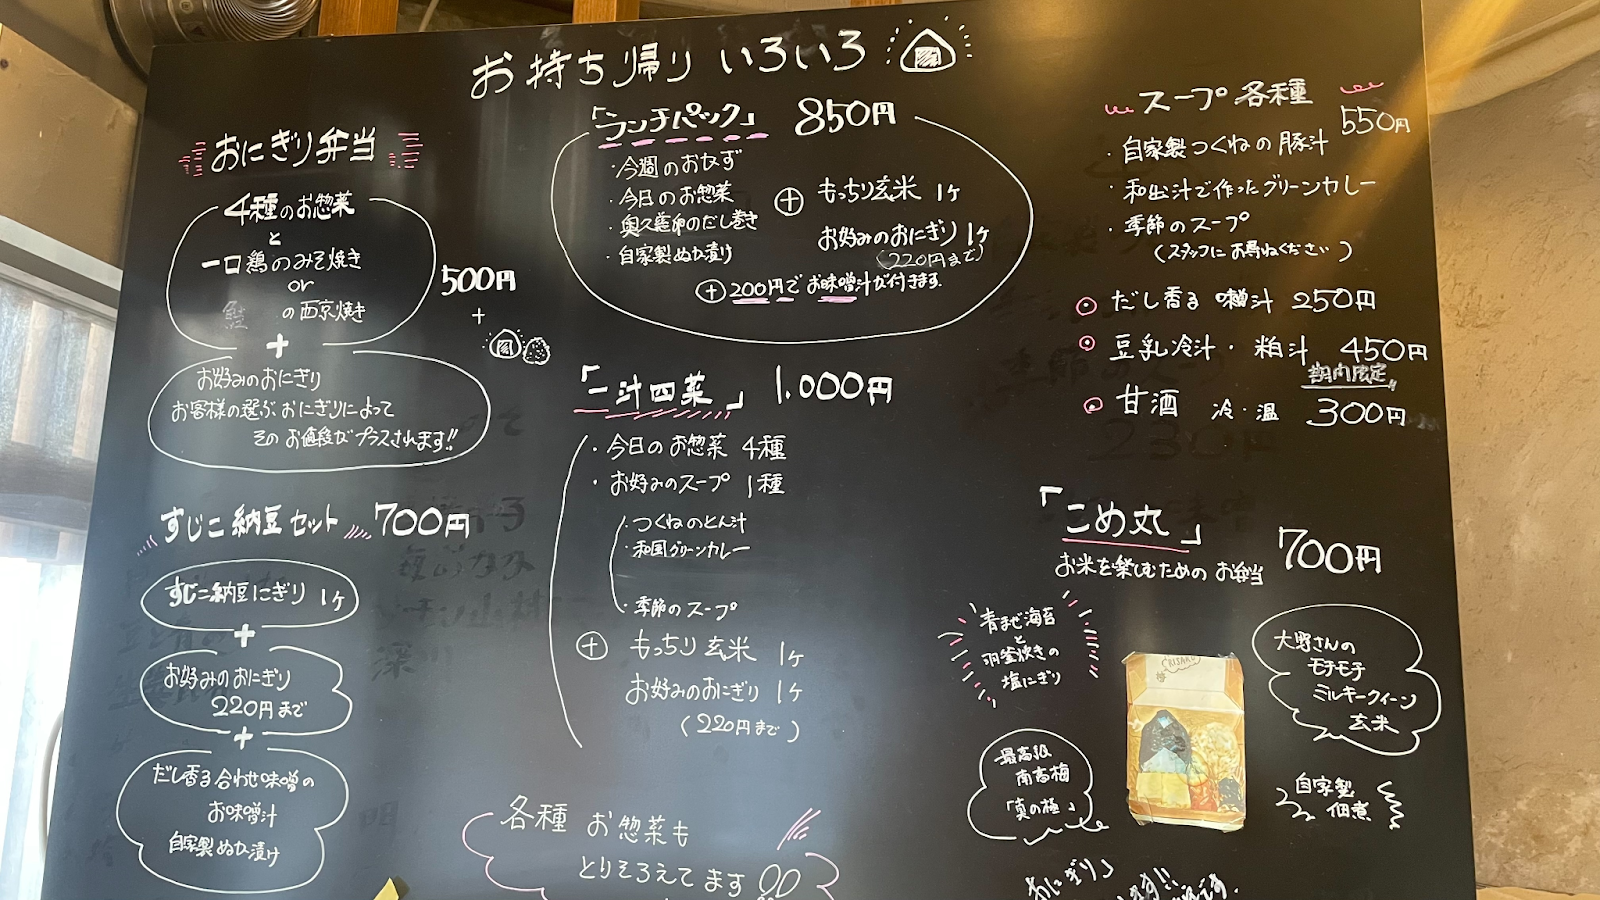 お持ち帰り いろいろ
おにぎり弁当
4種のお惣菜
と
一口鶏のみそ焼き
or
鮭 の西京焼き
500円
+
+
お好みのおにぎり
お客様の選ぶおにぎりによって
そのお値段がプラスされます!!
すじこ納豆セット 700円
すじこ納豆にぎり 1ヶ
+
お好みのおにぎり
220円まで
+
だし香る合わせ味噌の
お味噌汁
自家製ぬか漬け
「ランチパック」 850円
・今週のおかず
・今日のお惣菜
・奥久慈卵のだし巻き
・自家製ぬか漬け
+ もっちり玄米 1ヶ
お好みのおにぎり 1ヶ
(220円まで)
+ 200円でお味噌汁が付きます.
「一汁四菜」 1.000円
・今日のお惣菜 4種
・お好みのスープ 1種
・つくねのとん汁
・和風グリーンカレー
・季節のスープ
+ もっちり玄米 1ヶ
お好みのおにぎり 1ヶ
(220円まで)
各種 お惣菜も
とりそろえてます
スープ各種
550円
・自家製つくねの豚汁
・和出汁で作ったグリーンカレー
・季節のスープ
(スタッフにお尋ねください)
だし香る味噌汁 250円
豆乳冷汁・粕汁 450円
期間限定!!
甘酒 冷・温 300円
「こめ丸」 700円
お米を楽しむためのお弁当
青まぜ海苔
と
羽釜炊きの
塩にぎり
大野さんの
モチモチ
ミルキークィーン
玄米
最高級
南高梅
「真の極」
自家製
佃煮
おにぎり」